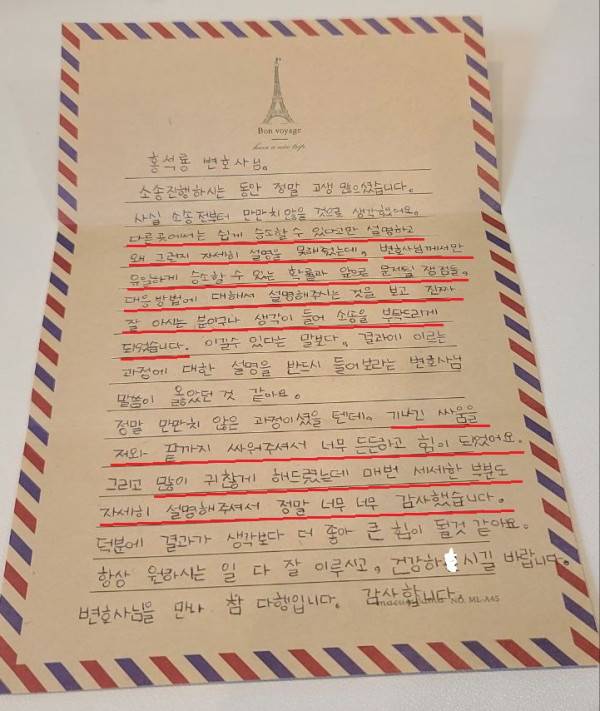 Bon voyage
have a nice trip
홍석룡 변호사님.
소송진행하시는 동안 정말 고생 많으셨습니다.
사실 소송전부터 만만치 않을 것으로 생각했어요.
다른곳에서는 쉽게 승소할 수 있다고만 설명하고
왜 그런지 자세히 설명을 못해줬는데, 변호사님께서만
유일하게 승소할 수 있는 확률과 앞으로 문제될 쟁점들,
대응방법에 대해서 설명해주시는 것을 보고 진짜
잘 아시는 분이구나 생각이 들어 소송을 부탁드리게
되었습니다. 이길수 있다는 말보다, 결과에 이르는
과정에 대한 설명을 반드시 들어보라는 변호사님
말씀이 옳았던 것 같아요.
정말 만만치 않은 과정이셨을 텐데, 기나긴 싸움을
저와 끝까지 싸워주셔서 너무 든든하고 힘이 되었어요.
그리고 많이 귀찮게 해드렸는데 매번 세세한 부분도
자세히 설명해주셔서 정말 너무 너무 감사했습니다.
덕분에 결과가 생각보다 더 좋아 큰 힘이 될것 같아요.
항상 원하시는 일 다 잘 이루시고, 건강하시길 바랍니다.
변호사님을 만나 참 다행입니다. 감사합니다.
NO. ML-A45